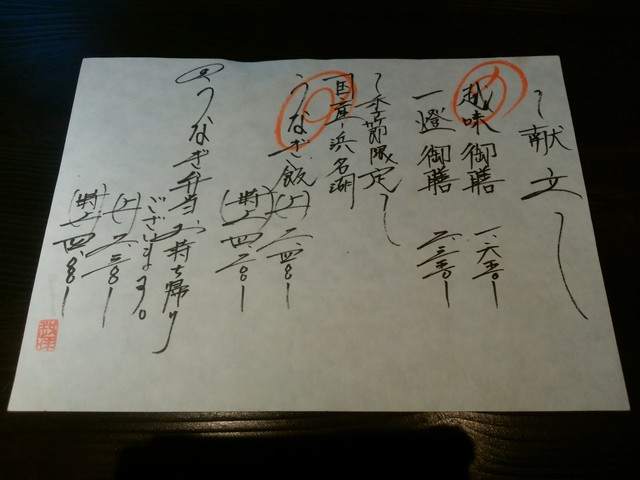 ～献立～
越味御膳 一、六五〇ー
一燈御膳 二、三五〇ー
～季節限定～
国産・浜名湖
うなぎ飯 (上) 二、四〇〇ー
(特上) 四、二〇〇ー
うなぎ弁当お持ち帰り
ございます。
(上) 二、三〇〇ー
(特上) 四、〇〇〇ー